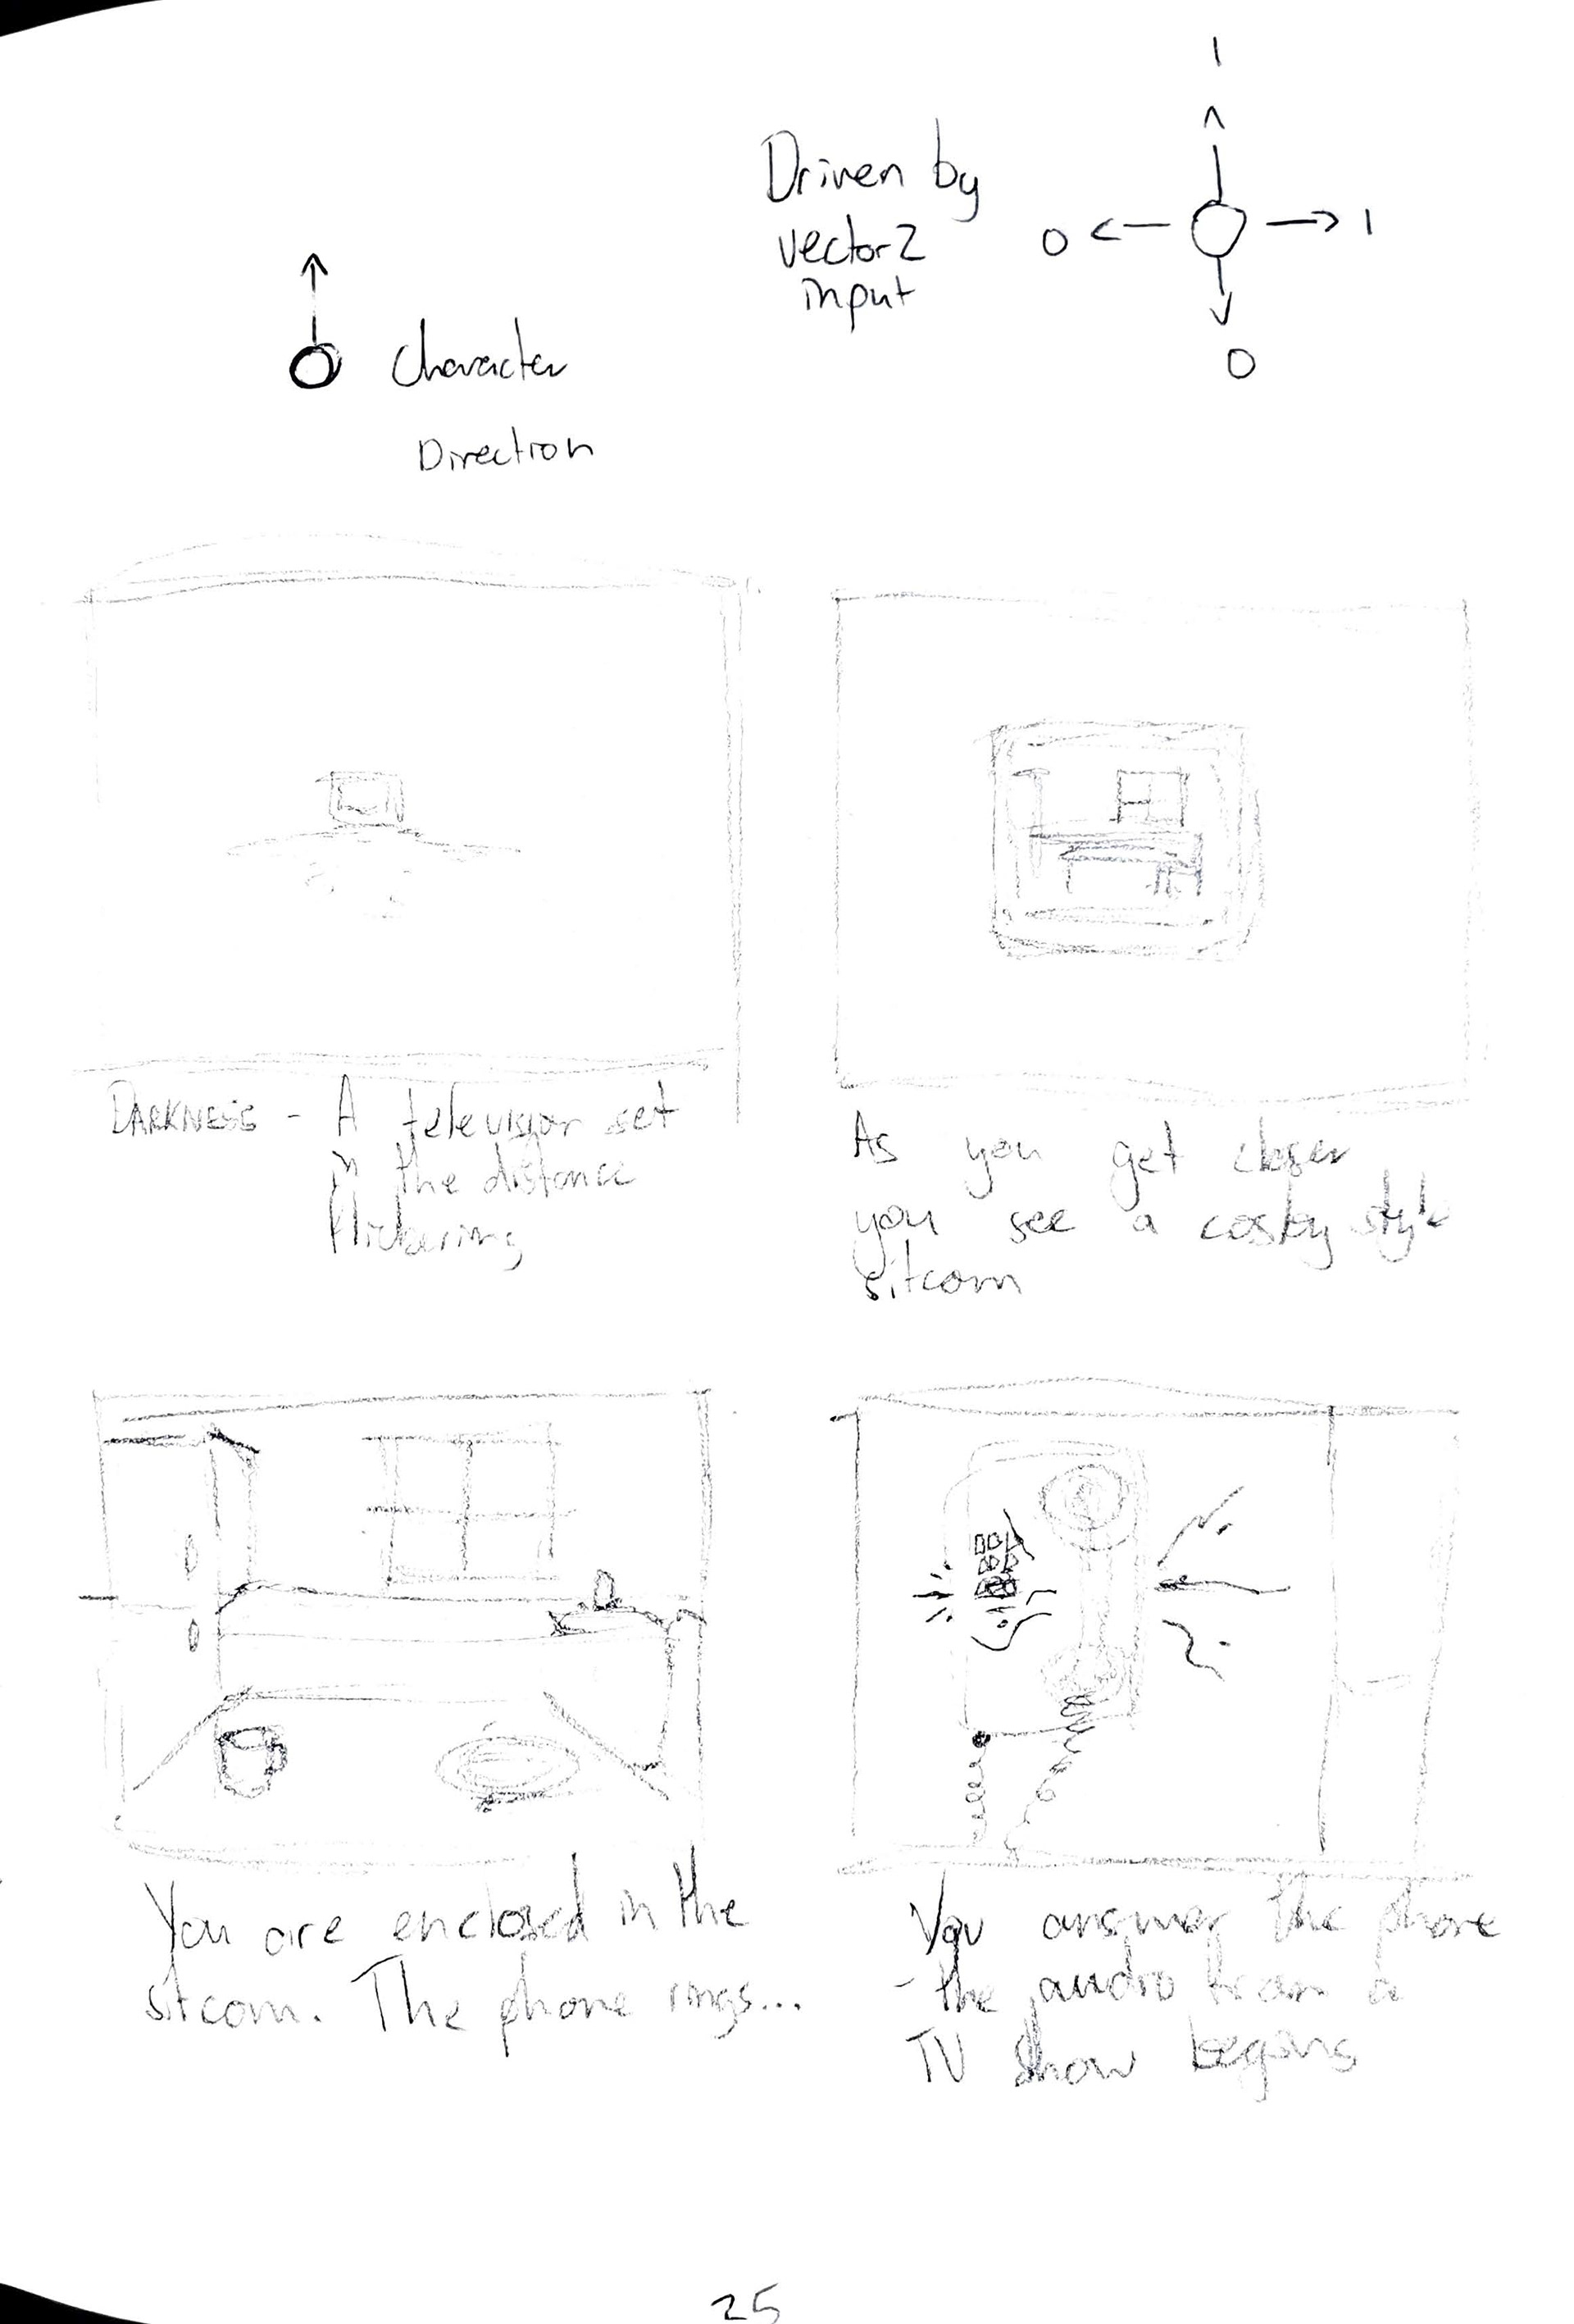 Driven by
vector2
input
1
0
1
0
Character
Direction
DARKNESS - A television set
in the distance
flickering
As you get closer
you see a cosby style
sitcom
You are enclosed in the
sitcom. The phone rings...
You answer the phone
- the audio from a
TV show begins
25